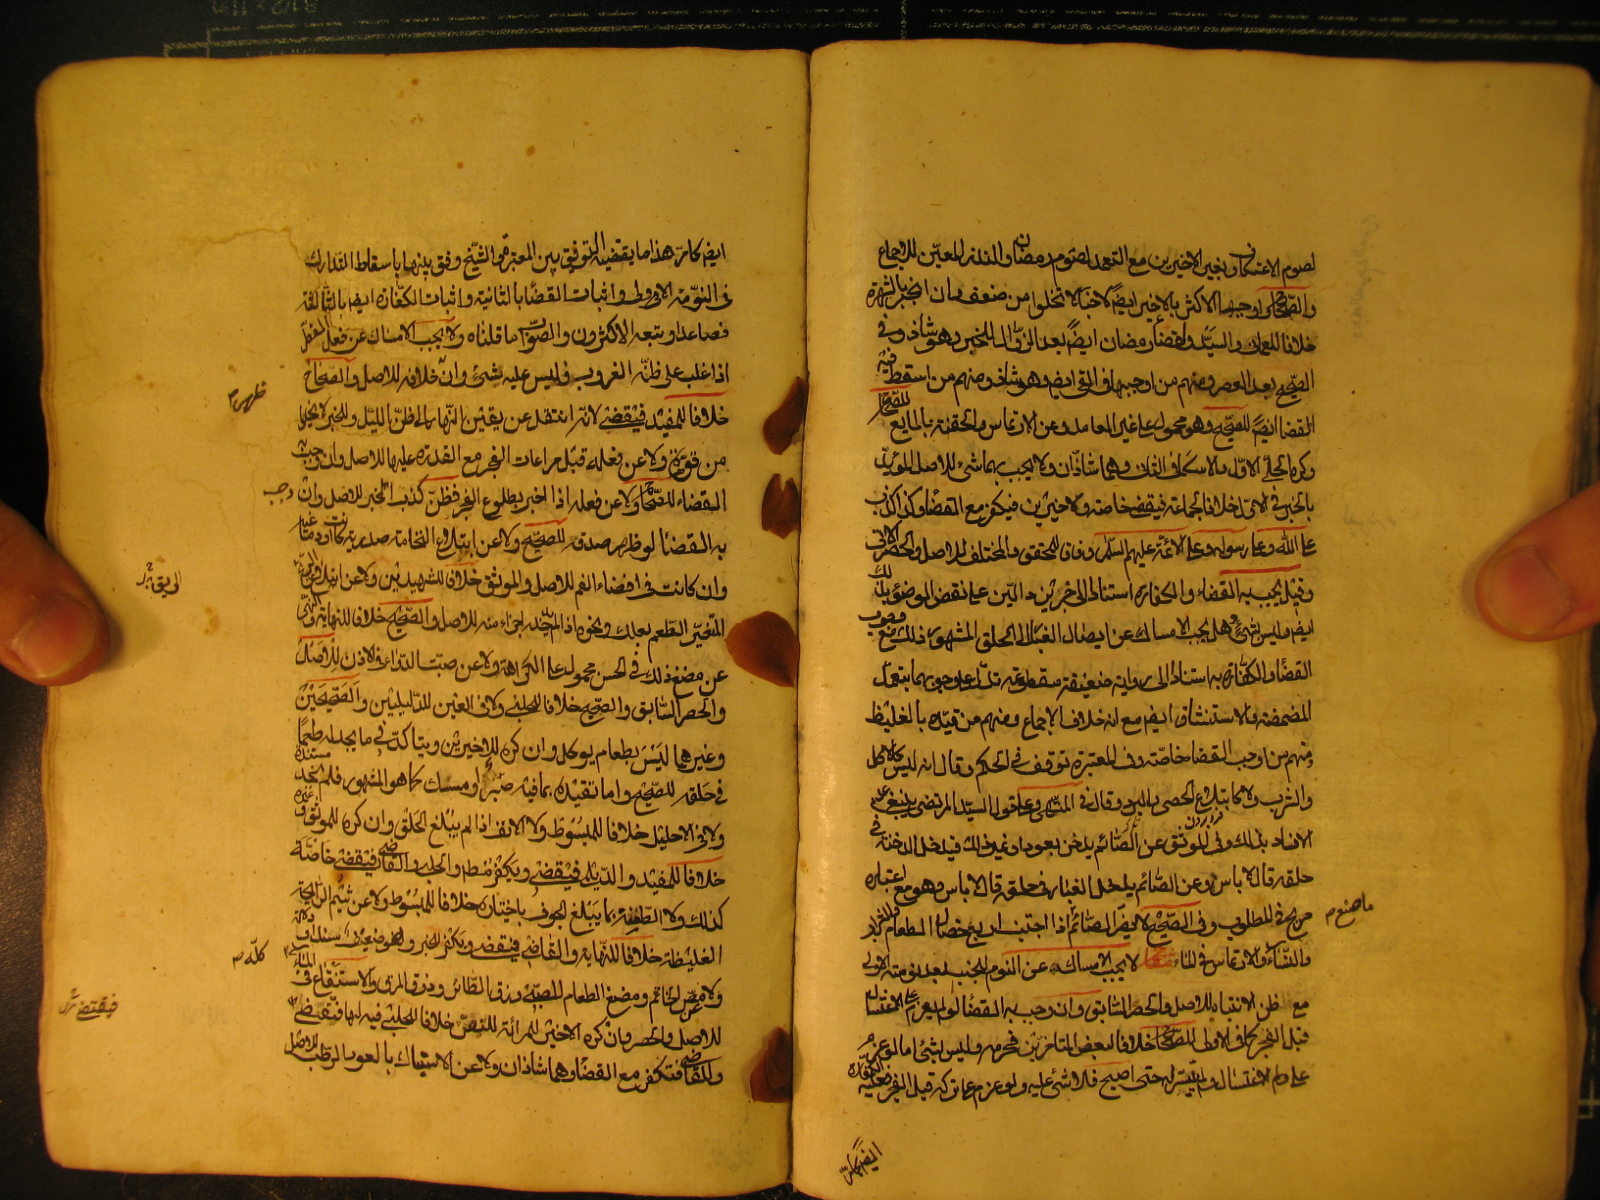 لصوم الاعتكاف وبغير الاخيرين مع التعمد لصوم رمضان والنذر المعين للاجماع
والصحاح اوجبها الاكثر بالاخير ايضا لاخبار لا تخلوا من ضعف وان انجبر بالشهرة
خلافا للعماني والسيد ولقضاء رمضان ايضا بعد الزوال للخبر وهو شاذ وفي
الصحيح بعد العصر ومنهم من اوجبها في القئ ايضا وهو شاذ ومنهم من اسقط فيه
القضا ايضا للصحيح وهو محمول على غير العامد وعن الارتماس والحقنة بالمايع
وكره الحلي الاول والاسكافي الثاني وهما شاذان ولا يجب بهما شئ للاصل المؤيد
بالخبر في الاول خلافا لجماعة فيقضي خاصة ولاخرين فيكفر مع القضا وكذا الكذب
على الله وعلى رسوله وعلى الائمة عليهم السلم وفاقا للمحقق والمختلف للاصل والحصر الاتي
وقيل يجب به القضاء والكفارة استنادا الى خبرين دالين على نقض الوضوء بذلك
ايضا وليس بشئ وهل يجب الامساك عن ايصال الغبار الى الحلق المشهور ذلك مع وجوب
القضا والكفارة به استنادا الى رواية ضعيفة مقطوعة تدل على وجوبهما بتعمد
المضمضة والاستنشاق ايضا مع انه خلاف الاجماع ومنهم من قيده بالغليظ
ومنهم من اوجب القضا خاصة وفي المعتبر توقف في الحكم وقال انه ليس كالاكل
والشرب ولا كابتلاع الحصى والبرد وقال في المنتهى وعلى قول السيد المرتضى ينبغي عدم
الافساد بذلك وفي الموثق عن الصائم يدخن بعود او بغير ذلك فيدخل الدخنة في
حلقه قال لا باس وعن الصائم يدخل الغبار في حلقه قال لا باس وهو مع اعتباره
صريح في المطلوب وفي الصحيح لا يضر الصائم اذا اجتنب اربع خصال الطعام والشراب
ما صنع م
والنساء والارتماس في الماء لا يجب الامساك عن النوم للجنب بعد نومته الاولى
مع ظن الانتباه للاصل والحصر السابق وان وجب به القضا لو لم يعزم على الاغتسال
قبل الفجر كما في الاولى للصحاح خلافا لبعض المتاخرين فحرمه وليس بشئ اما لو عزم
على الاغتسال ولم يتيسر له حتى اصبح فلا شئ عليه ولو عزم على تركه قبل الفجر فعليه الكفارة
ايضا كما مر
ايضا كما مر هذا ما يقتضيه التوفيق بين المعتبرة والشيخ وفق بينها باسقاط التدارك
في النومة الاولى واثبات القضا بالثانية واثبات الكفارة ايضا بالثالثة
فصاعدا وتبعه الاكثرون والصواب ما قلناه ولا يجب الامساك عن فعل المفطر
اذا غلب على ظنه الغروب وليس عليه شئ وان خلافه للاصل والصحاح
ظهر م
خلافا للمفيد فيقضي لانه انتقل عن يقين النهار الى ظن الليل وللخبر لا يخلو
من قوة ولا عن فعله قبل مراعات الفجر مع القدرة عليها للاصل وان وجب به
القضاء للصحاح ولا عن فعله اذا اخبر بطلوع الفجر فظن كذب المخبر للاصل وان وجب
به القضا لو ظهر صدقه للصحيح ولا عن ابتلاع النخامة صدرية كانت او دماغية
وان كانت في افضاء الفم للاصل والموثق خلافا للشهيدين ولا عن ابتلاع الريق
الريق م
المتغير الطعم بعلك ونحوه اذا لم يجد اجزاء منه للاصل والصحيح خلافا للنهاية والنهي
عن مضغ ذلك في الحسن محمول على الكراهة ولا عن صب الدواء في الاذن للاصل
والحصر السابق والصحيح خلافا للحلبي ولا في العين للدليلين والصحيحين
وغيرهما ليس بطعام يوكل وان كره للاخيرين ويتاكد في ما يجد له طعما
في حلقه للصحيح واما تقييده بما فيه صبر او مسك كما هو المشهور فلم اجد مستنده
ولا في الاحليل خلافا للمبسوط ولا الانف اذا لم يبلغ الحلق وان كره للموثق وغيره
خلافا للمفيد والديلمي فيقضي ويكفر مطلقا والحلبي والقاضي فيقضي خاصة
كذلك ولا الطعنة بما يبلغ الجوف باختياره خلافا للمبسوط ولا عن شم الرائحة
الغليظة خلافا للنهاية والقاضي فيقضي ويكفر للخبر وهو ضعيف سندا ودلالة
كله م
ولا عن مص الخاتم ومضغ الطعام للصبي وزق الطائر وذوق المرق والاستنقاع في الماء
فيقتضي
للاصل والحصر وان كره الاخير للمراة للنص خلافا للحلبي فيه لها فتقضي
وللقاضي فتكفر مع القضا وهما شاذان ولا عن الاستياك بالعود الرطب للاصل